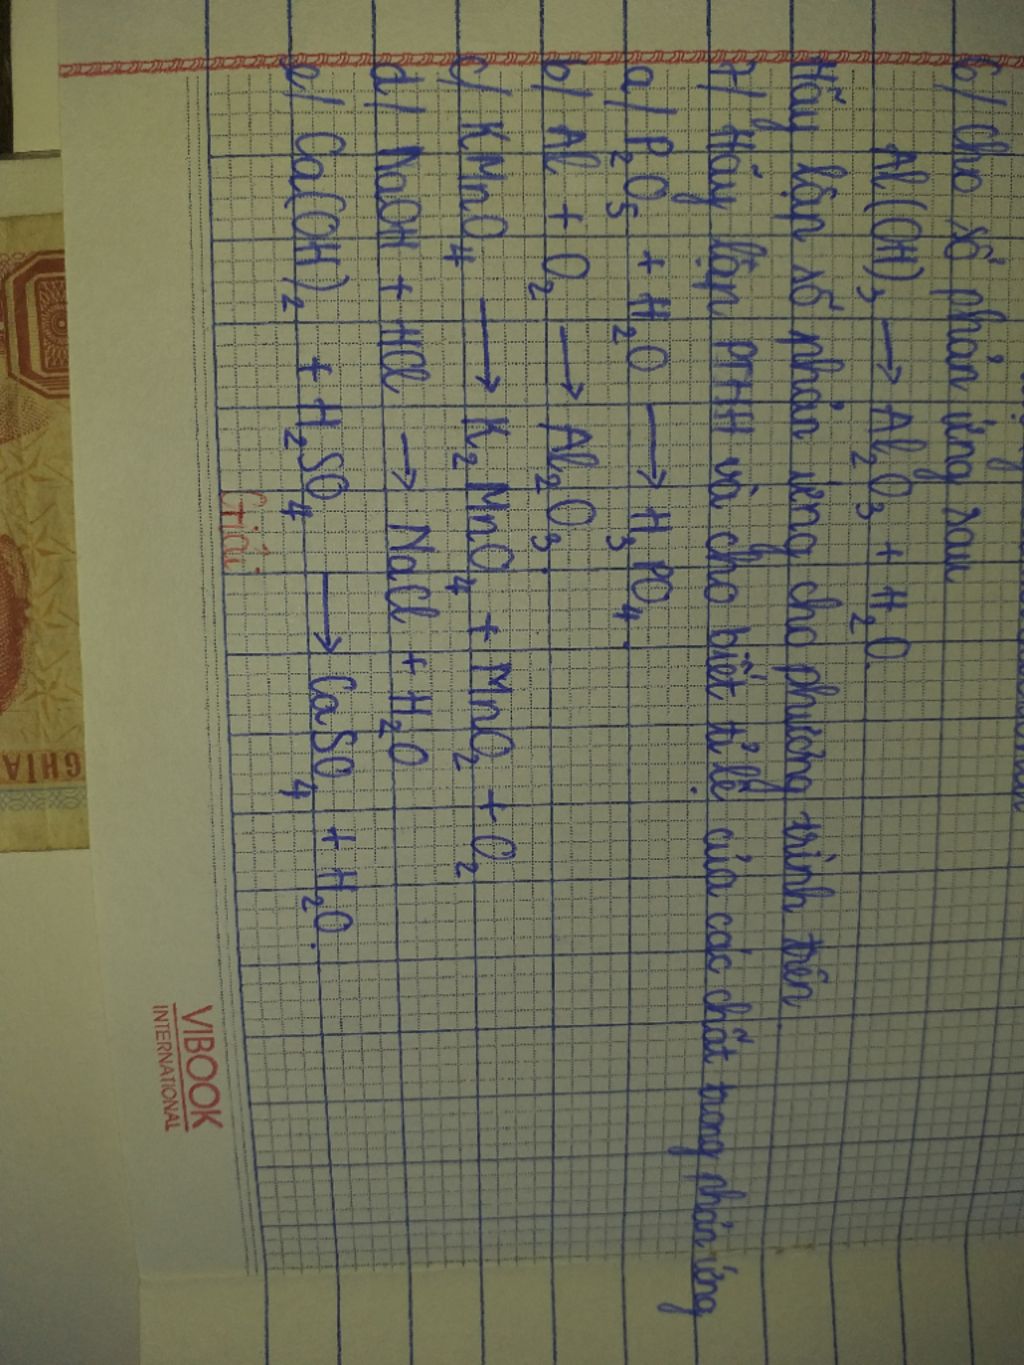 6/ Cho sơ phản ứng sau
Al(OH)3 → Al2O3 + H2O.
Hãy lập sơ phản ứng cho phương trình trên
7/ Hãy lập PTHH và cho biết tỉ lệ của các chất trong phản ứng
a/ P2O5 + H2O → H3PO4.
b/ Al + O2 → Al2O3.
c/ KMnO4 → K2MnO4 + MnO2 + O2
d/ NaOH + HCl → NaCl + H2O
e/ Ca(OH)2 + H2SO4 → CaSO4 + H2O.
Giải
VIBOOK
INTERNATIONAL
GHIA